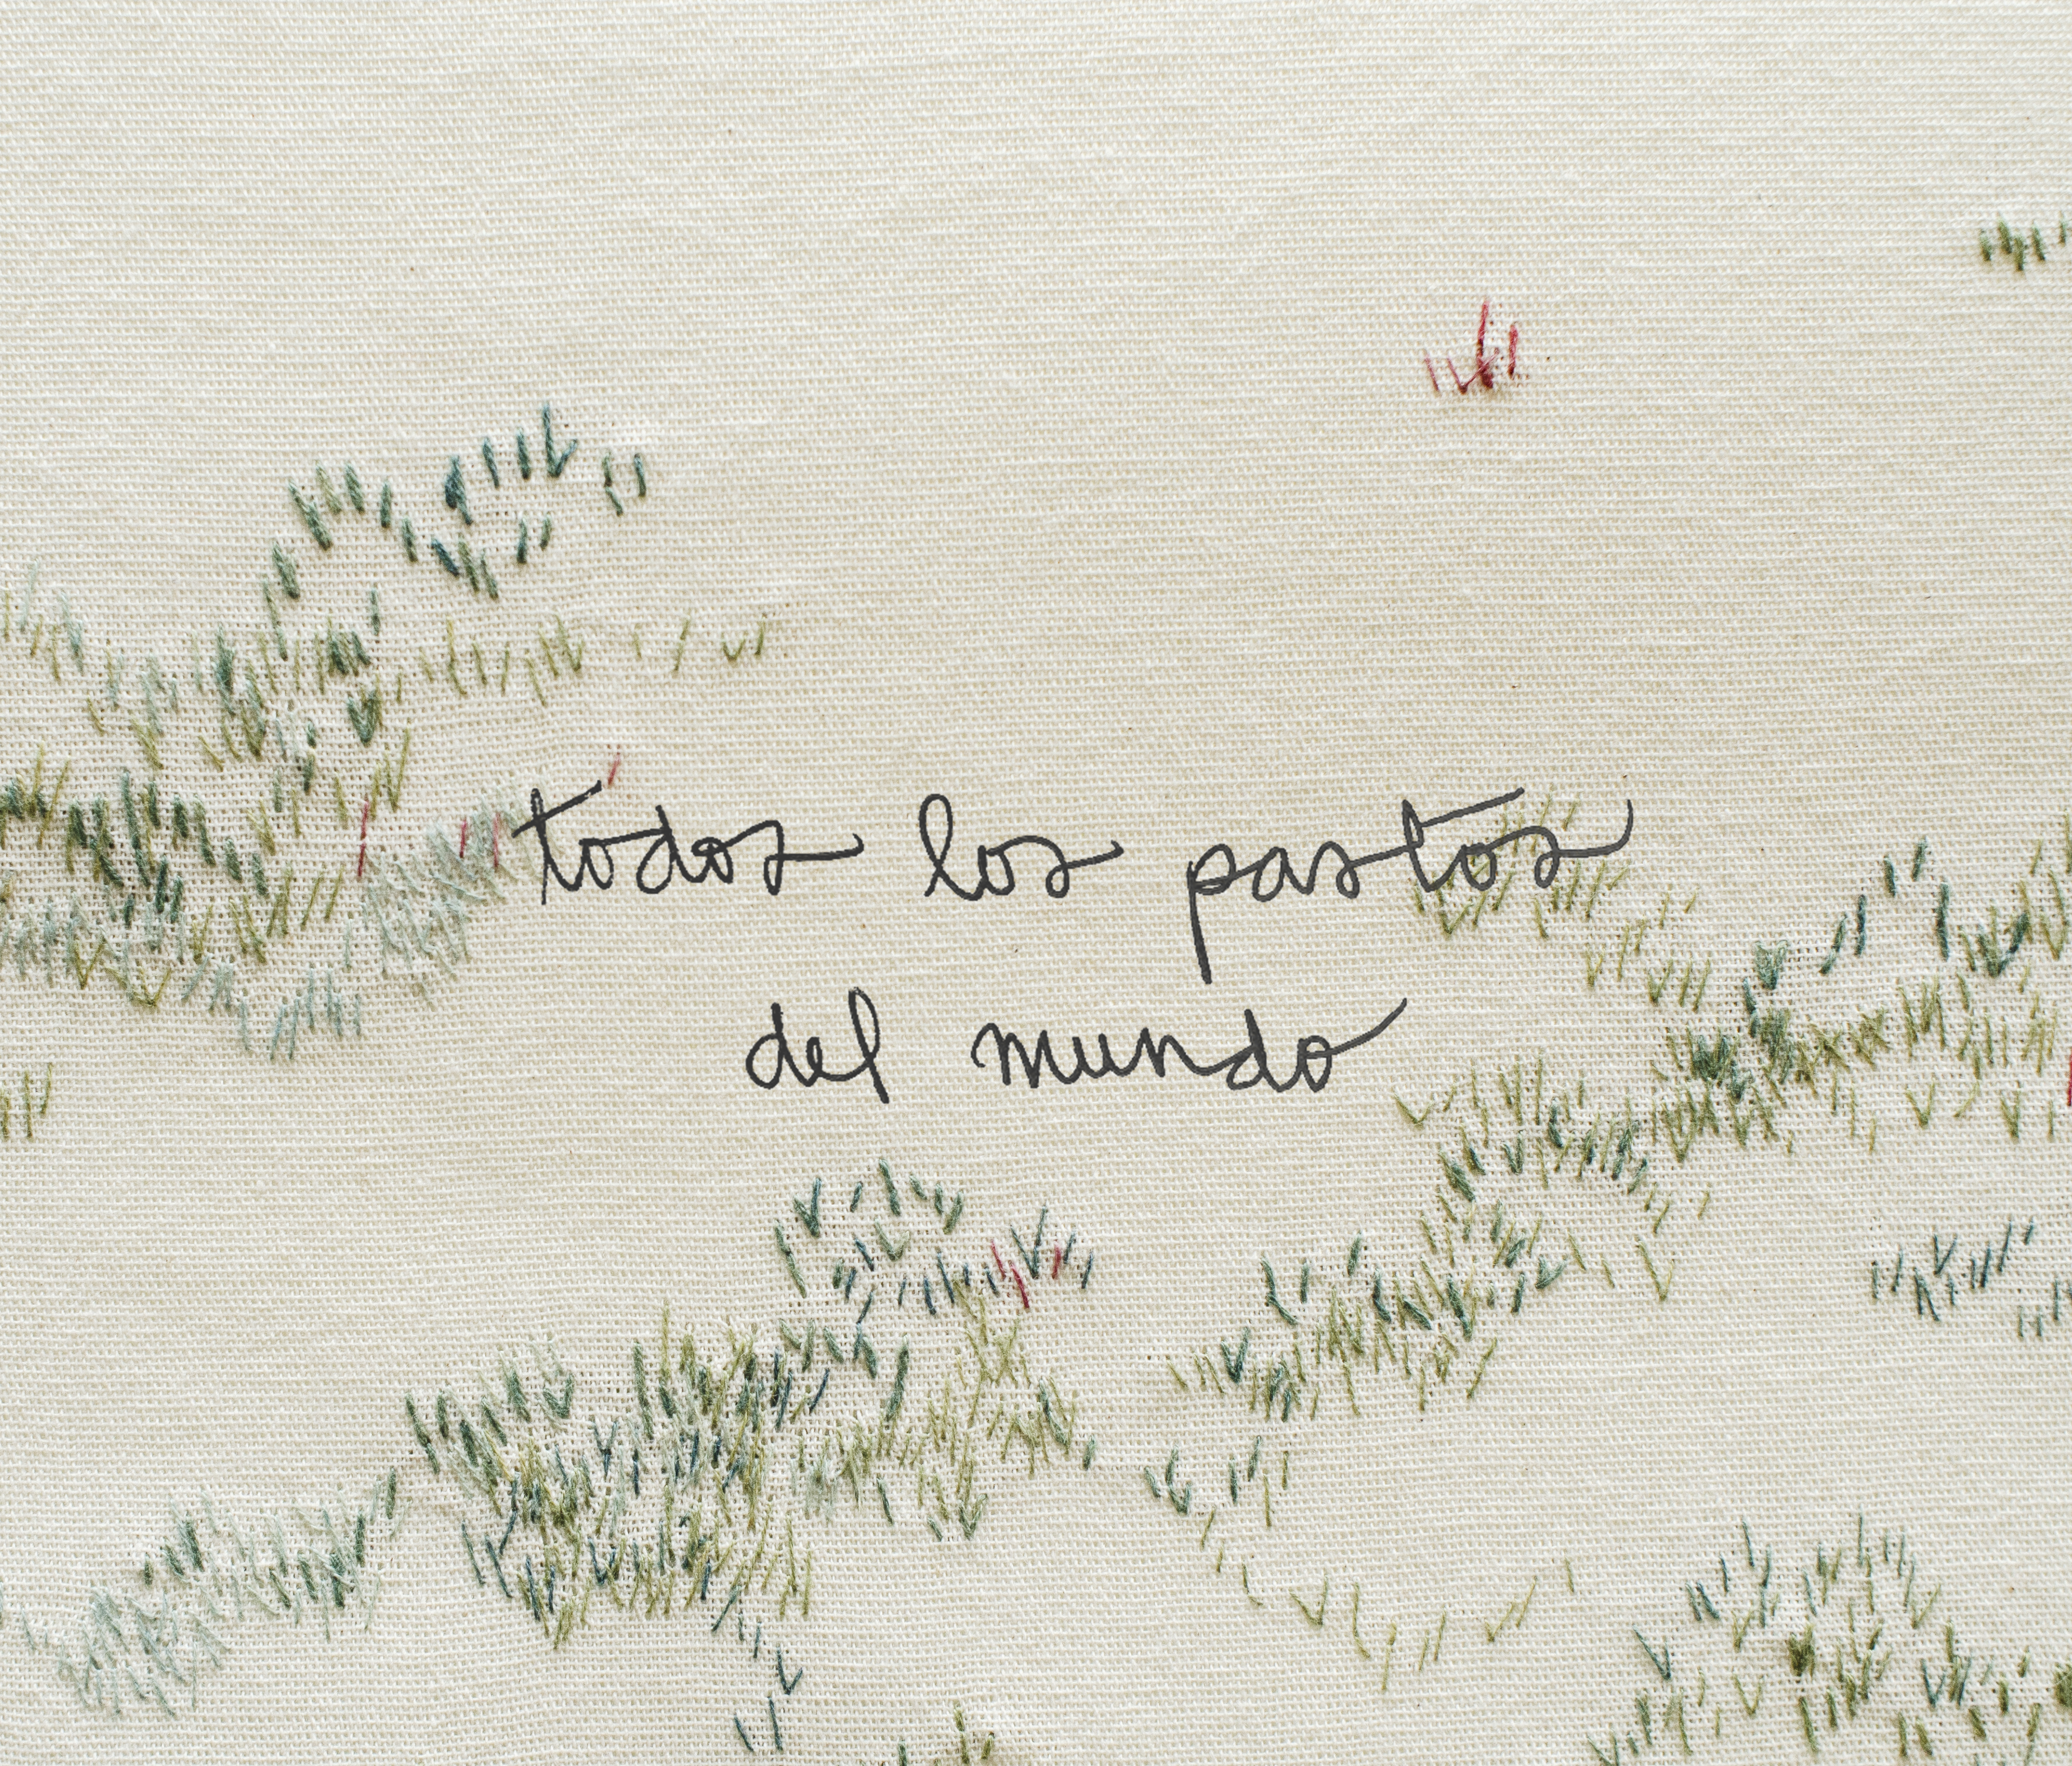 todos los pastos
del mundo